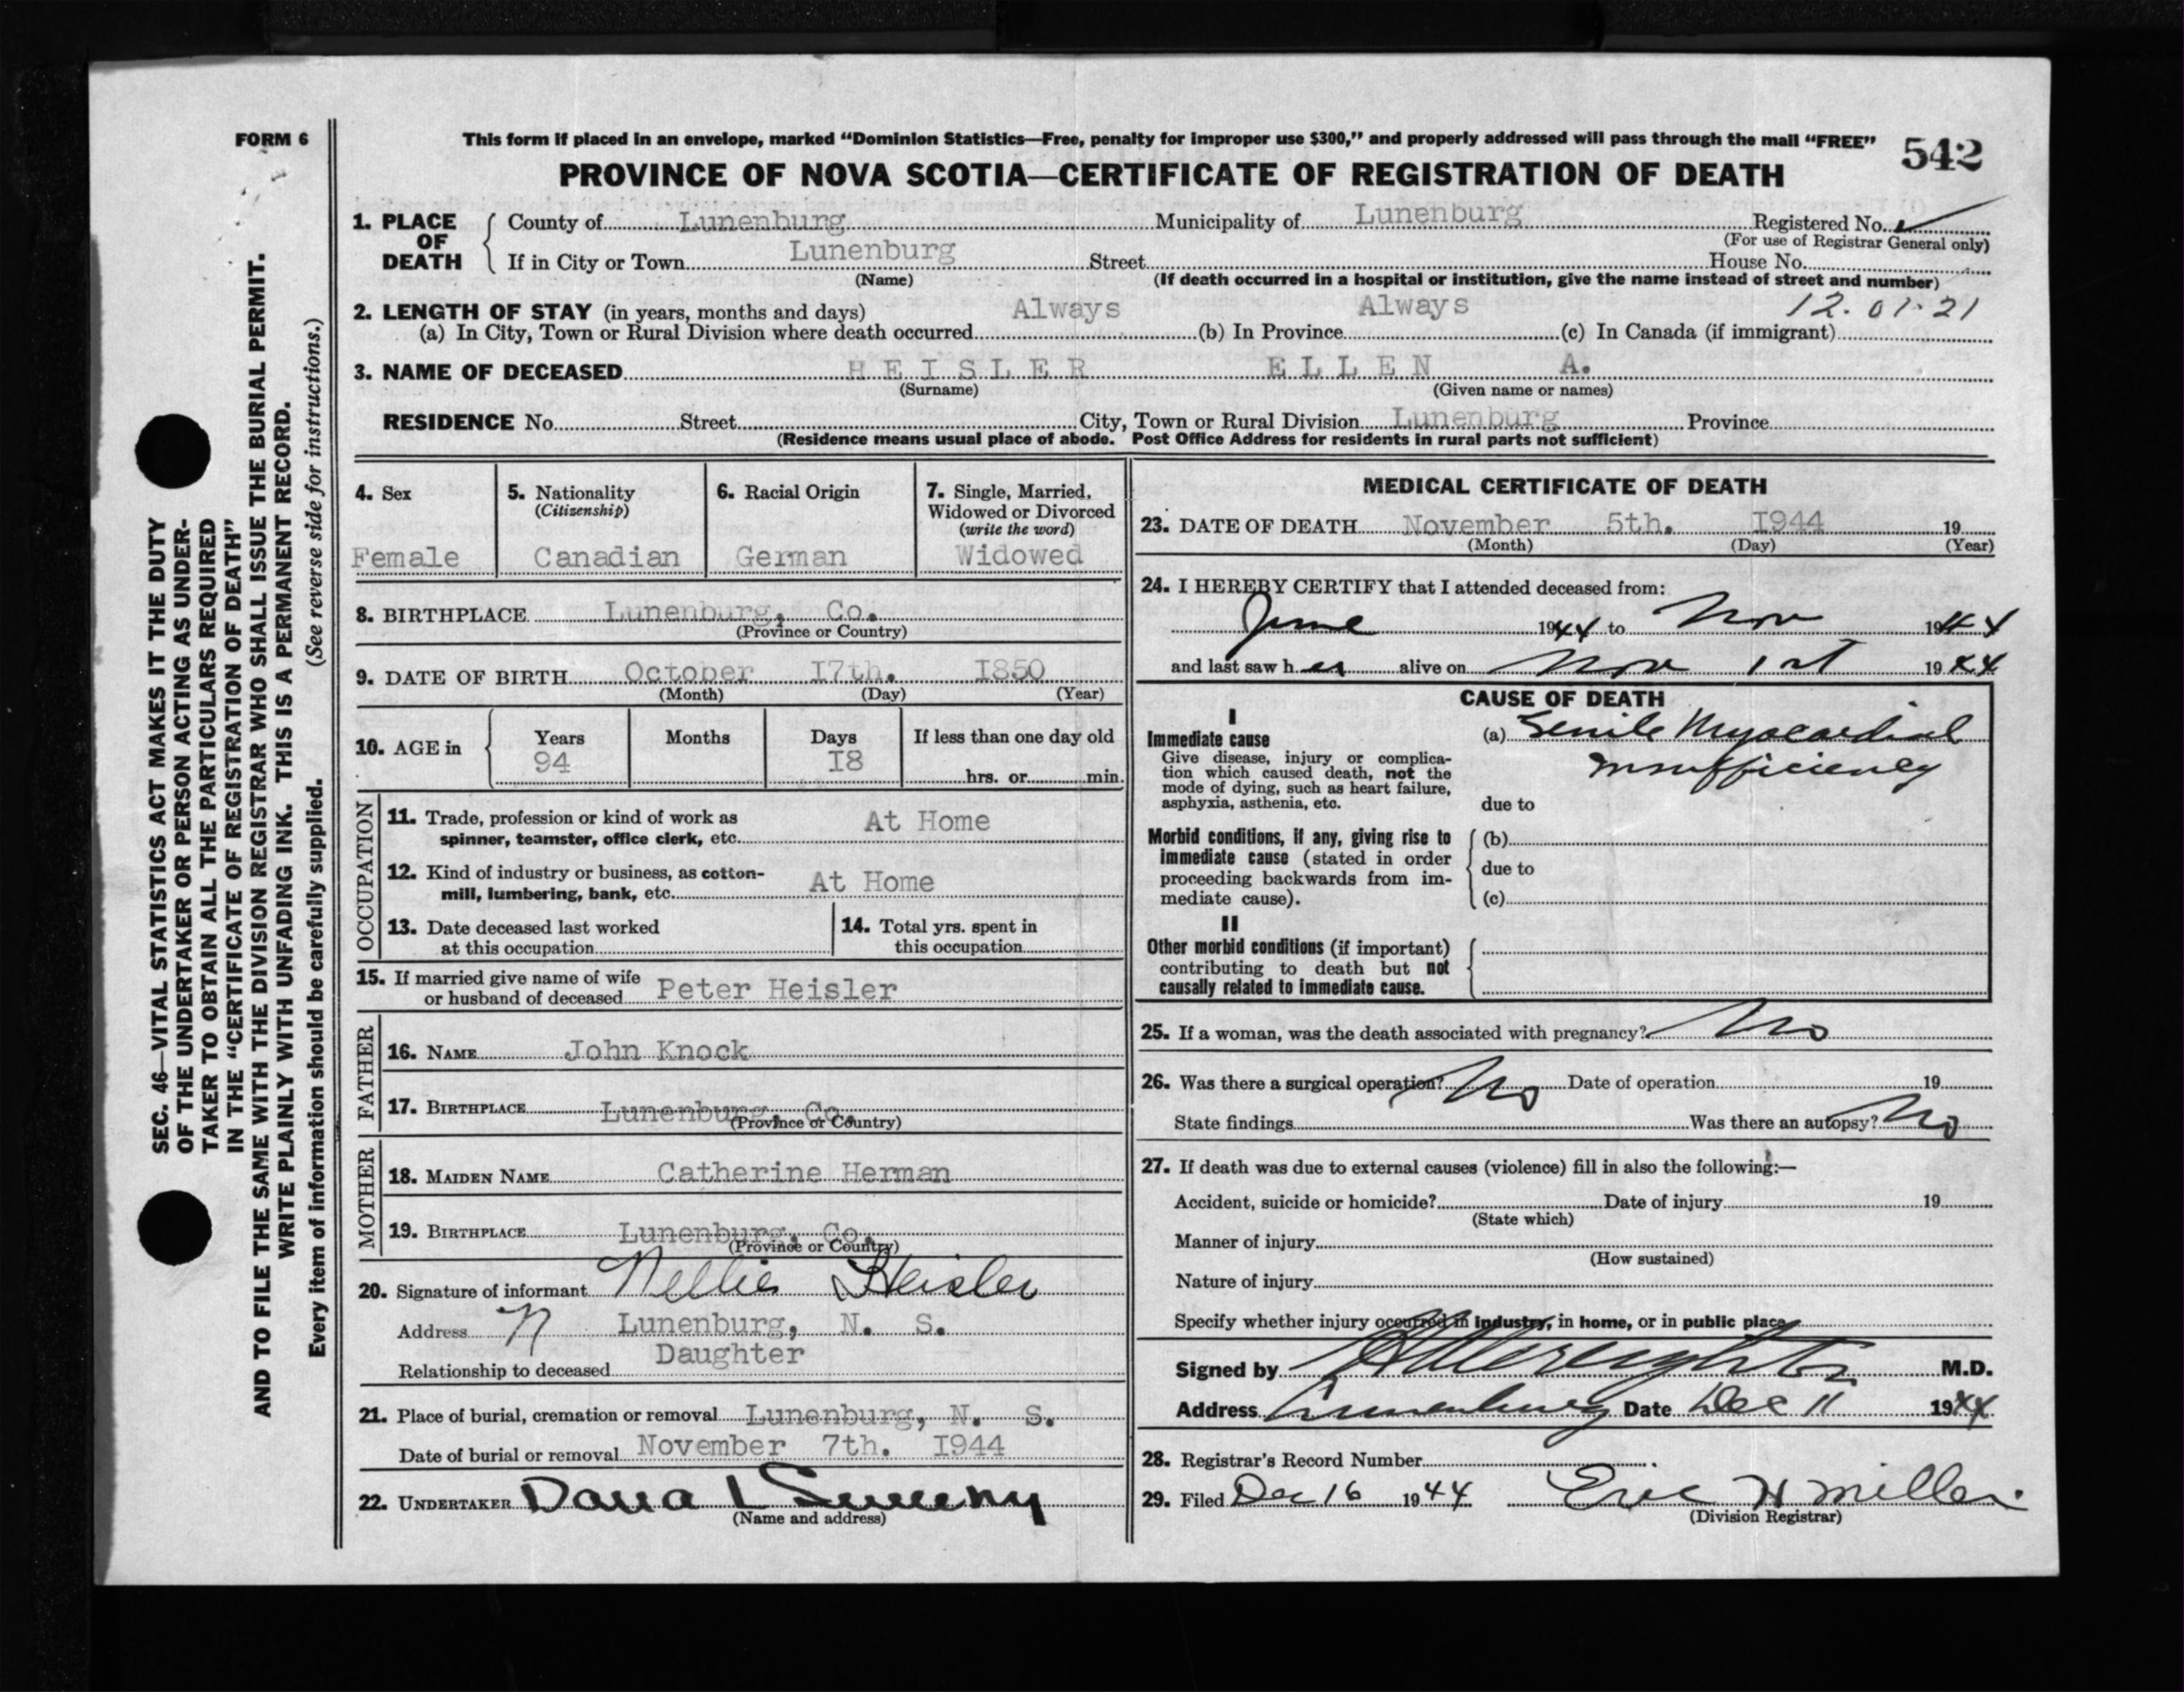 FORM 6
This form if placed in an envelope, marked "Dominion Statistics—Free, penalty for improper use $300," and properly addressed will pass through the mail "FREE"
542
PROVINCE OF NOVA SCOTIA—CERTIFICATE OF REGISTRATION OF DEATH
1. PLACE OF DEATH
County of Lunenburg Municipality of Lunenburg Registered No. ✓
(For use of Registrar General only)
If in City or Town Lunenburg Street House No.
(Name) (If death occurred in a hospital or institution, give the name instead of street and number)
2. LENGTH OF STAY (in years, months and days) Always Always 12.01.21
(a) In City, Town or Rural Division where death occurred (b) In Province (c) In Canada (if immigrant)
3. NAME OF DECEASED HEISLER ELLEN A.
(Surname) (Given name or names)
RESIDENCE No. Street City, Town or Rural Division Lunenburg Province
(Residence means usual place of abode. Post Office Address for residents in rural parts not sufficient)
4. Sex
Female
5. Nationality
(Citizenship)
Canadian
6. Racial Origin
German
7. Single, Married,
Widowed or Divorced
(write the word)
Widowed
8. BIRTHPLACE Lunenburg, Co.
(Province or Country)
9. DATE OF BIRTH October I7th. I850
(Month) (Day) (Year)
10. AGE in
Years Months Days If less than one day old
94 I8 hrs. or min.
OCCUPATION
11. Trade, profession or kind of work as
spinner, teamster, office clerk, etc. At Home
12. Kind of industry or business, as cotton-
mill, lumbering, bank, etc. At Home
13. Date deceased last worked
at this occupation
14. Total yrs. spent in
this occupation
15. If married give name of wife
or husband of deceased Peter Heisler
FATHER
16. NAME John Knock
17. BIRTHPLACE Lunenburg, Co.
(Province or Country)
MOTHER
18. MAIDEN NAME Catherine Herman
19. BIRTHPLACE Lunenburg, Co.
(Province or Country)
20. Signature of informant Nellie Heisler
Address Lunenburg, N. S.
Relationship to deceased Daughter
21. Place of burial, cremation or removal Lunenburg, N. S.
Date of burial or removal November 7th. I944
22. UNDERTAKER Dana L Sweeny
(Name and address)
MEDICAL CERTIFICATE OF DEATH
23. DATE OF DEATH November 5th. I944 19
(Month) (Day) (Year)
24. I HEREBY CERTIFY that I attended deceased from:
June 1944 to Nov 1944
and last saw h er alive on Nov 1st 1944
CAUSE OF DEATH
I
Immediate cause
Give disease, injury or complica-
tion which caused death, not the
mode of dying, such as heart failure,
asphyxia, asthenia, etc.
(a) Senile Myocardial
insufficiency
due to
Morbid conditions, if any, giving rise to
immediate cause (stated in order
proceeding backwards from im-
mediate cause).
(b)
due to
(c)
II
Other morbid conditions (if important)
contributing to death but not
causally related to immediate cause.
25. If a woman, was the death associated with pregnancy? No
26. Was there a surgical operation? No Date of operation 19
State findings Was there an autopsy? No
27. If death was due to external causes (violence) fill in also the following:—
Accident, suicide or homicide? Date of injury 19
(State which)
Manner of injury
(How sustained)
Nature of injury
Specify whether injury occurred in industry, in home, or in public place
Signed by M.D.
Address Lunenburg Date Dec 11 1944
28. Registrar's Record Number
29. Filed Dec 16 1944 Eric H Miller
(Division Registrar)
SEC. 46—VITAL STATISTICS ACT MAKES IT THE DUTY
OF THE UNDERTAKER OR PERSON ACTING AS UNDER-
TAKER TO OBTAIN ALL THE PARTICULARS REQUIRED
IN THE "CERTIFICATE OF REGISTRATION OF DEATH"
AND TO FILE THE SAME WITH THE DIVISION REGISTRAR WHO SHALL ISSUE THE BURIAL PERMIT.
WRITE PLAINLY WITH UNFADING INK. THIS IS A PERMANENT RECORD.
Every item of information should be carefully supplied. (See reverse side for instructions.)